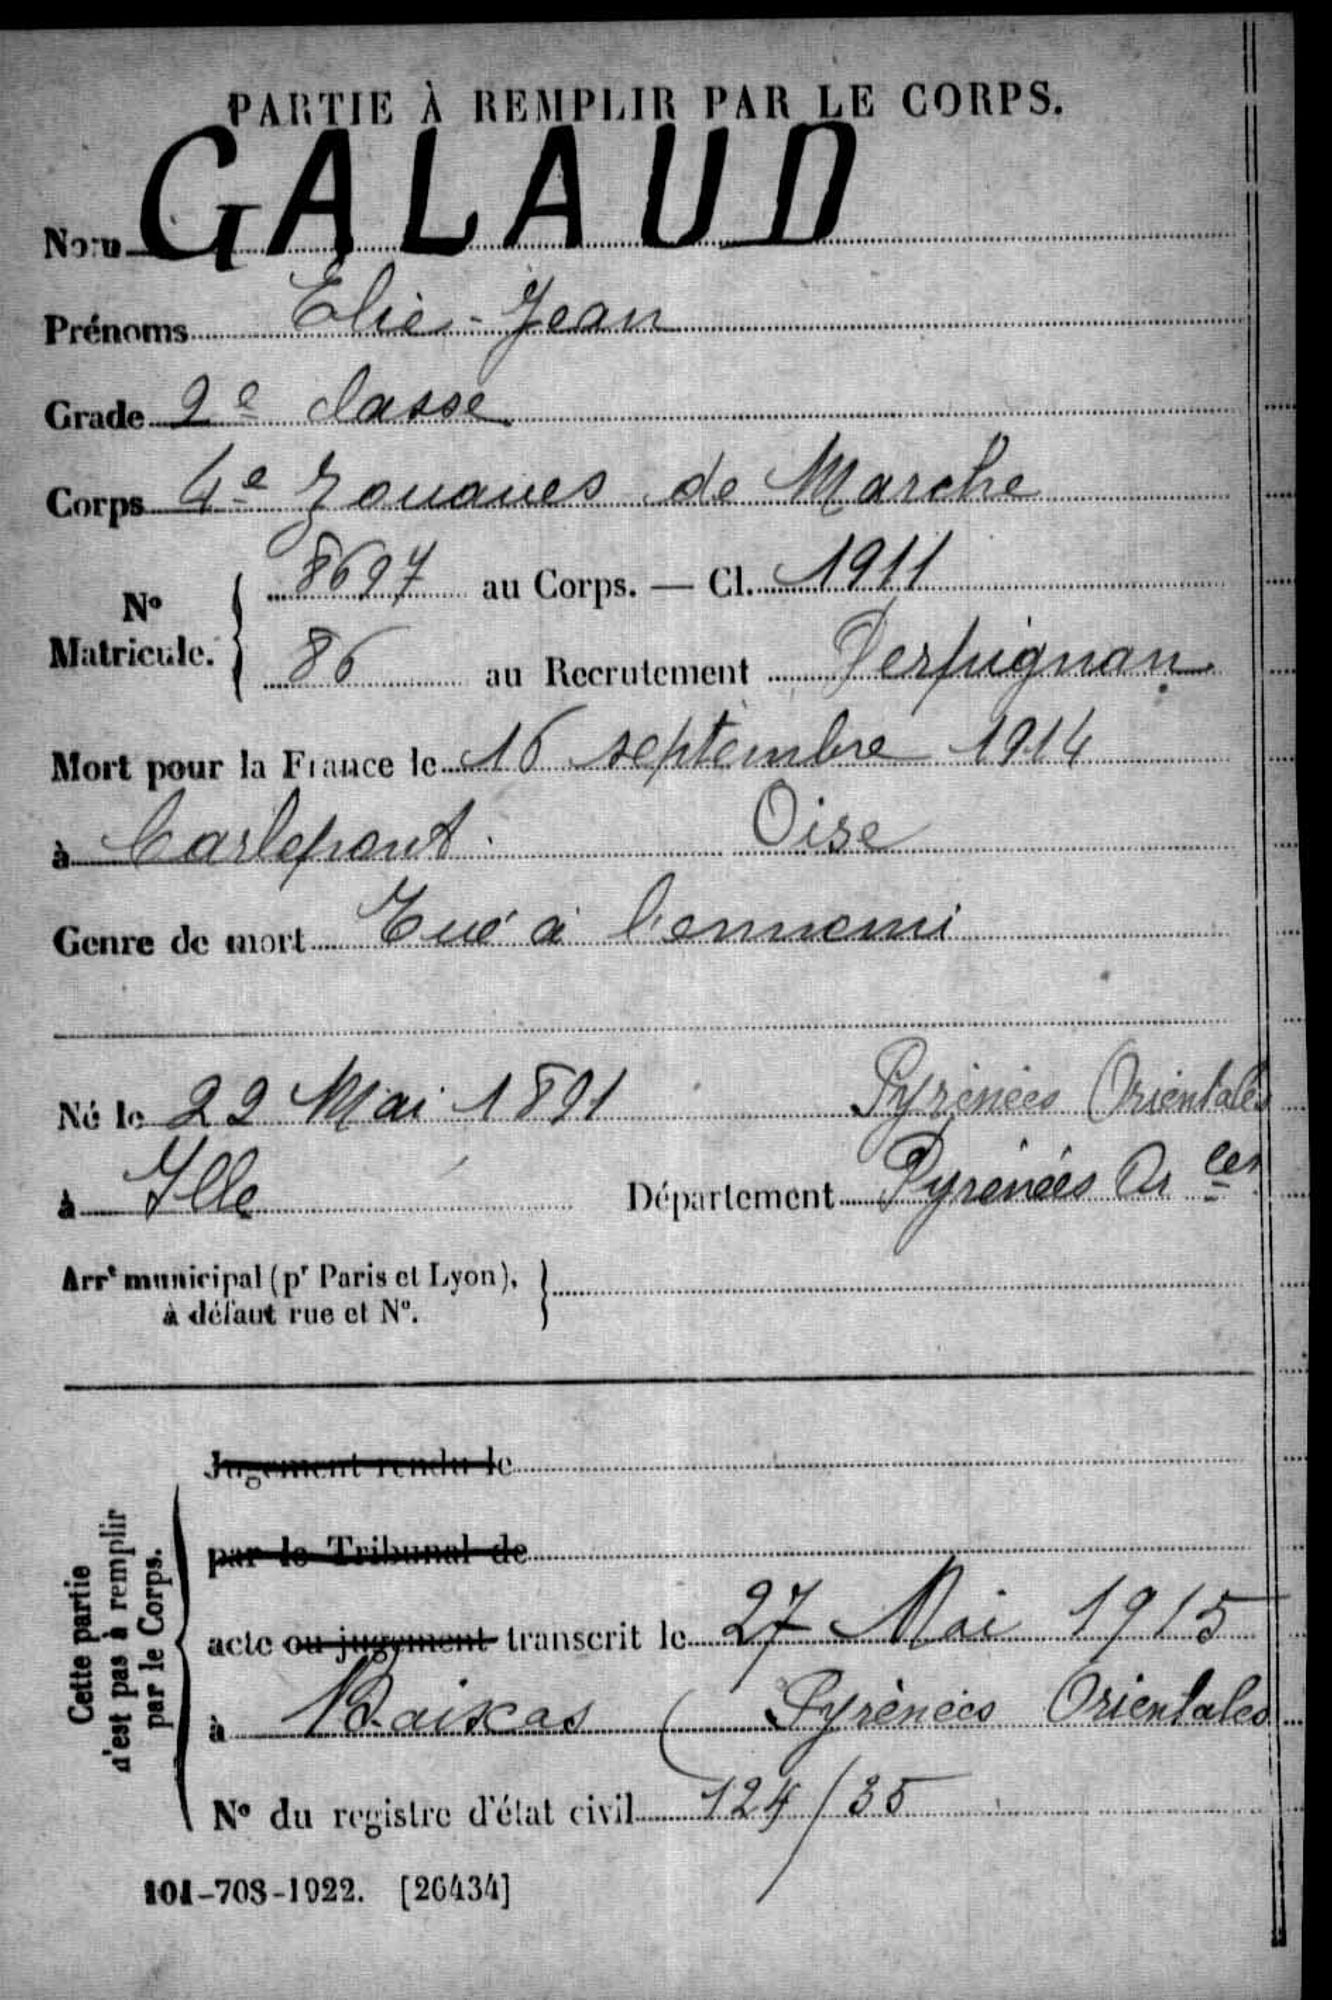 PARTIE À REMPLIR PAR LE CORPS.
Nom GALAUD
Prénoms Elie-Jean
Grade 2e classe
Corps 4e Zouaves de Marche
No Matricule. { 8697 au Corps. — Cl. 1911
86 au Recrutement Perpignan
Mort pour la France le 16 septembre 1914
à Carlepont. Oise
Genre de mort Tué à l'ennemi
Né le 22 Mai 1891 Pyrénées Orientales
à Ille Département Pyrénées Or les
Arrt municipal (pr Paris et Lyon), à défaut rue et No. }
Cette partie n'est pas à remplir par le Corps.
Jugement rendu le
par le Tribunal de
acte ou jugement transcrit le 27 Mai 1915
à Baixas (Pyrénées Orientales
No du registre d'état civil 124/35
101-708-1922. [26434]